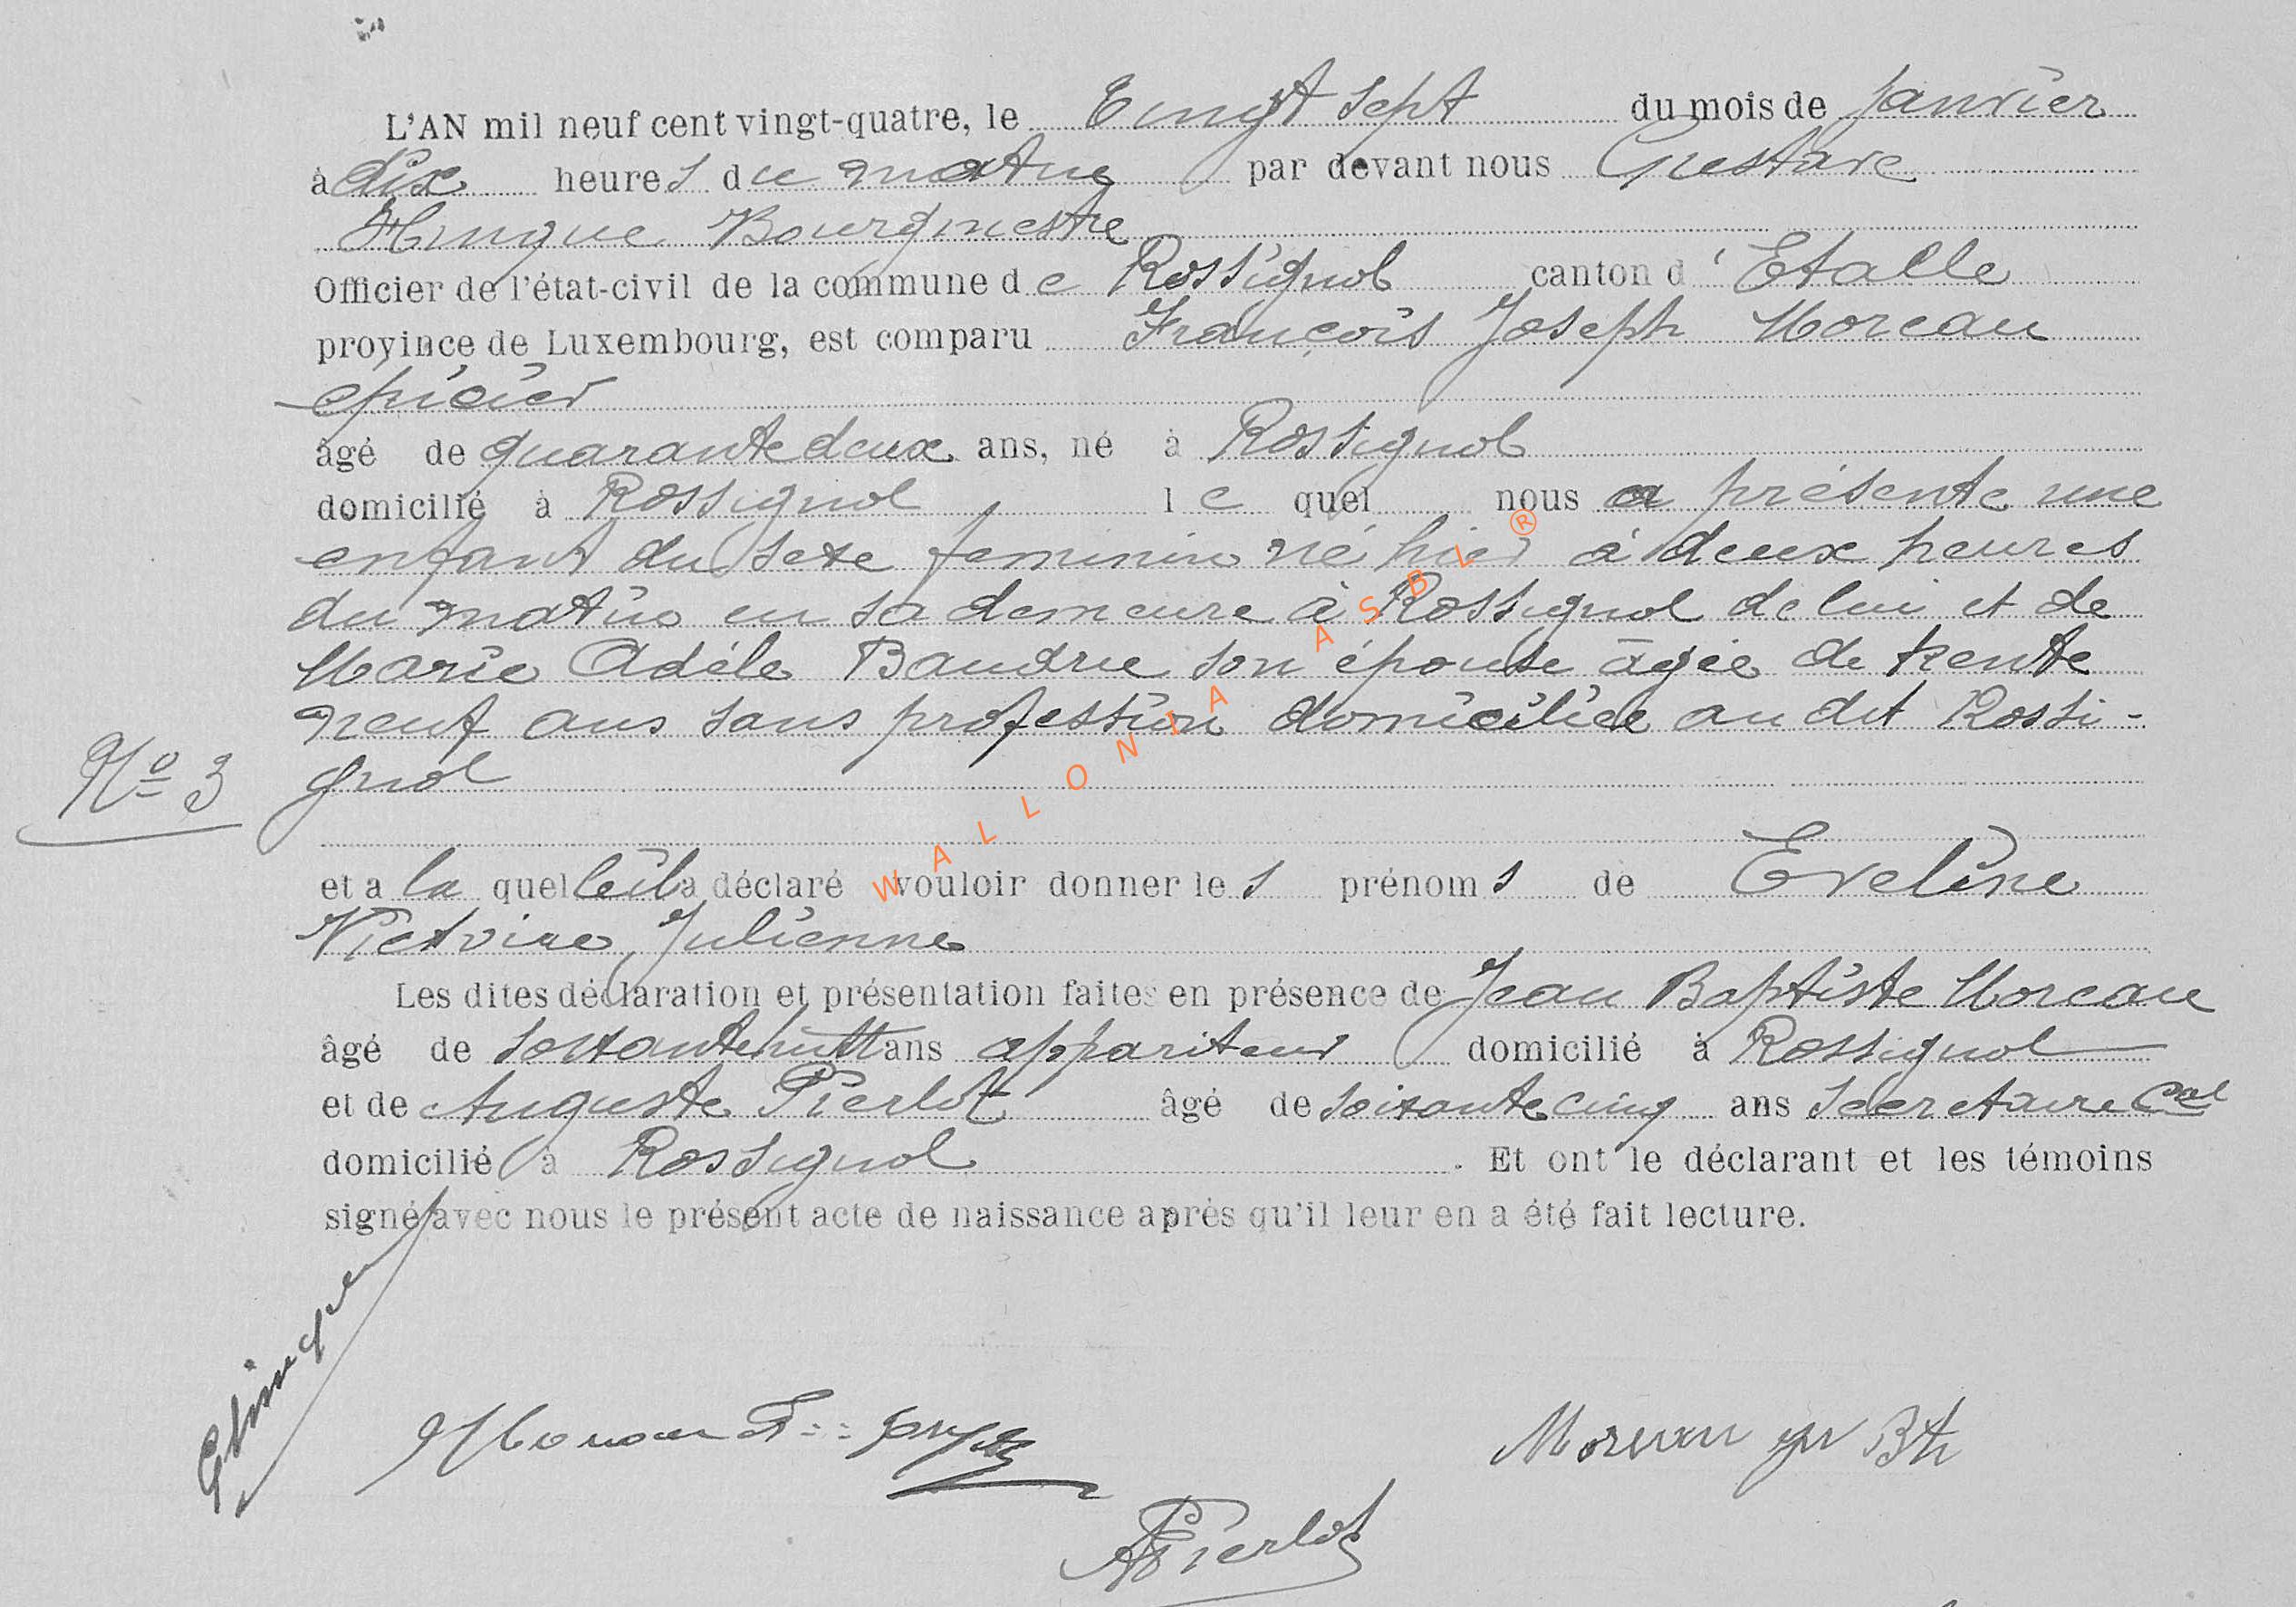 L'AN mil neuf cent vingt-quatre, le Vingt sept du mois de Janvier
à dix heures du matin par devant nous Gustave
Hinque Bourgmestre
Officier de l'état-civil de la commune de Rossignol canton d'Etalle
province de Luxembourg, est comparu François Joseph Moreau
épicier
âgé de quarante deux ans, né à Rossignol
domicilié à Rossignol lequel nous a présenté une
enfant du sexe feminin né hier à deux heures
du matin en sa demeure à Rossignol de lui et de
Marie Adéle Baudrue son épouse âgée de trente
neuf ans sans profession domiciliée au dit Rossi-
No 3 gnol
et a la quelle il a déclaré vouloir donner les prénoms de Eveline
Victoire Julienne
Les dites déclaration et présentation faites en présence de Jean Baptiste Moreau
âgé de soixante huit ans appariteur domicilié à Rossignol
et de Auguste Pierlot âgé de soixante cinq ans secretaire Cnal
domicilié à Rossignol . Et ont le déclarant et les témoins
signé avec nous le présent acte de naissance après qu'il leur en a été fait lecture.
GHinque
Moreau F:: Joseph
Moreau Jn Bte
APierlot
WALLONIA ASBL ®